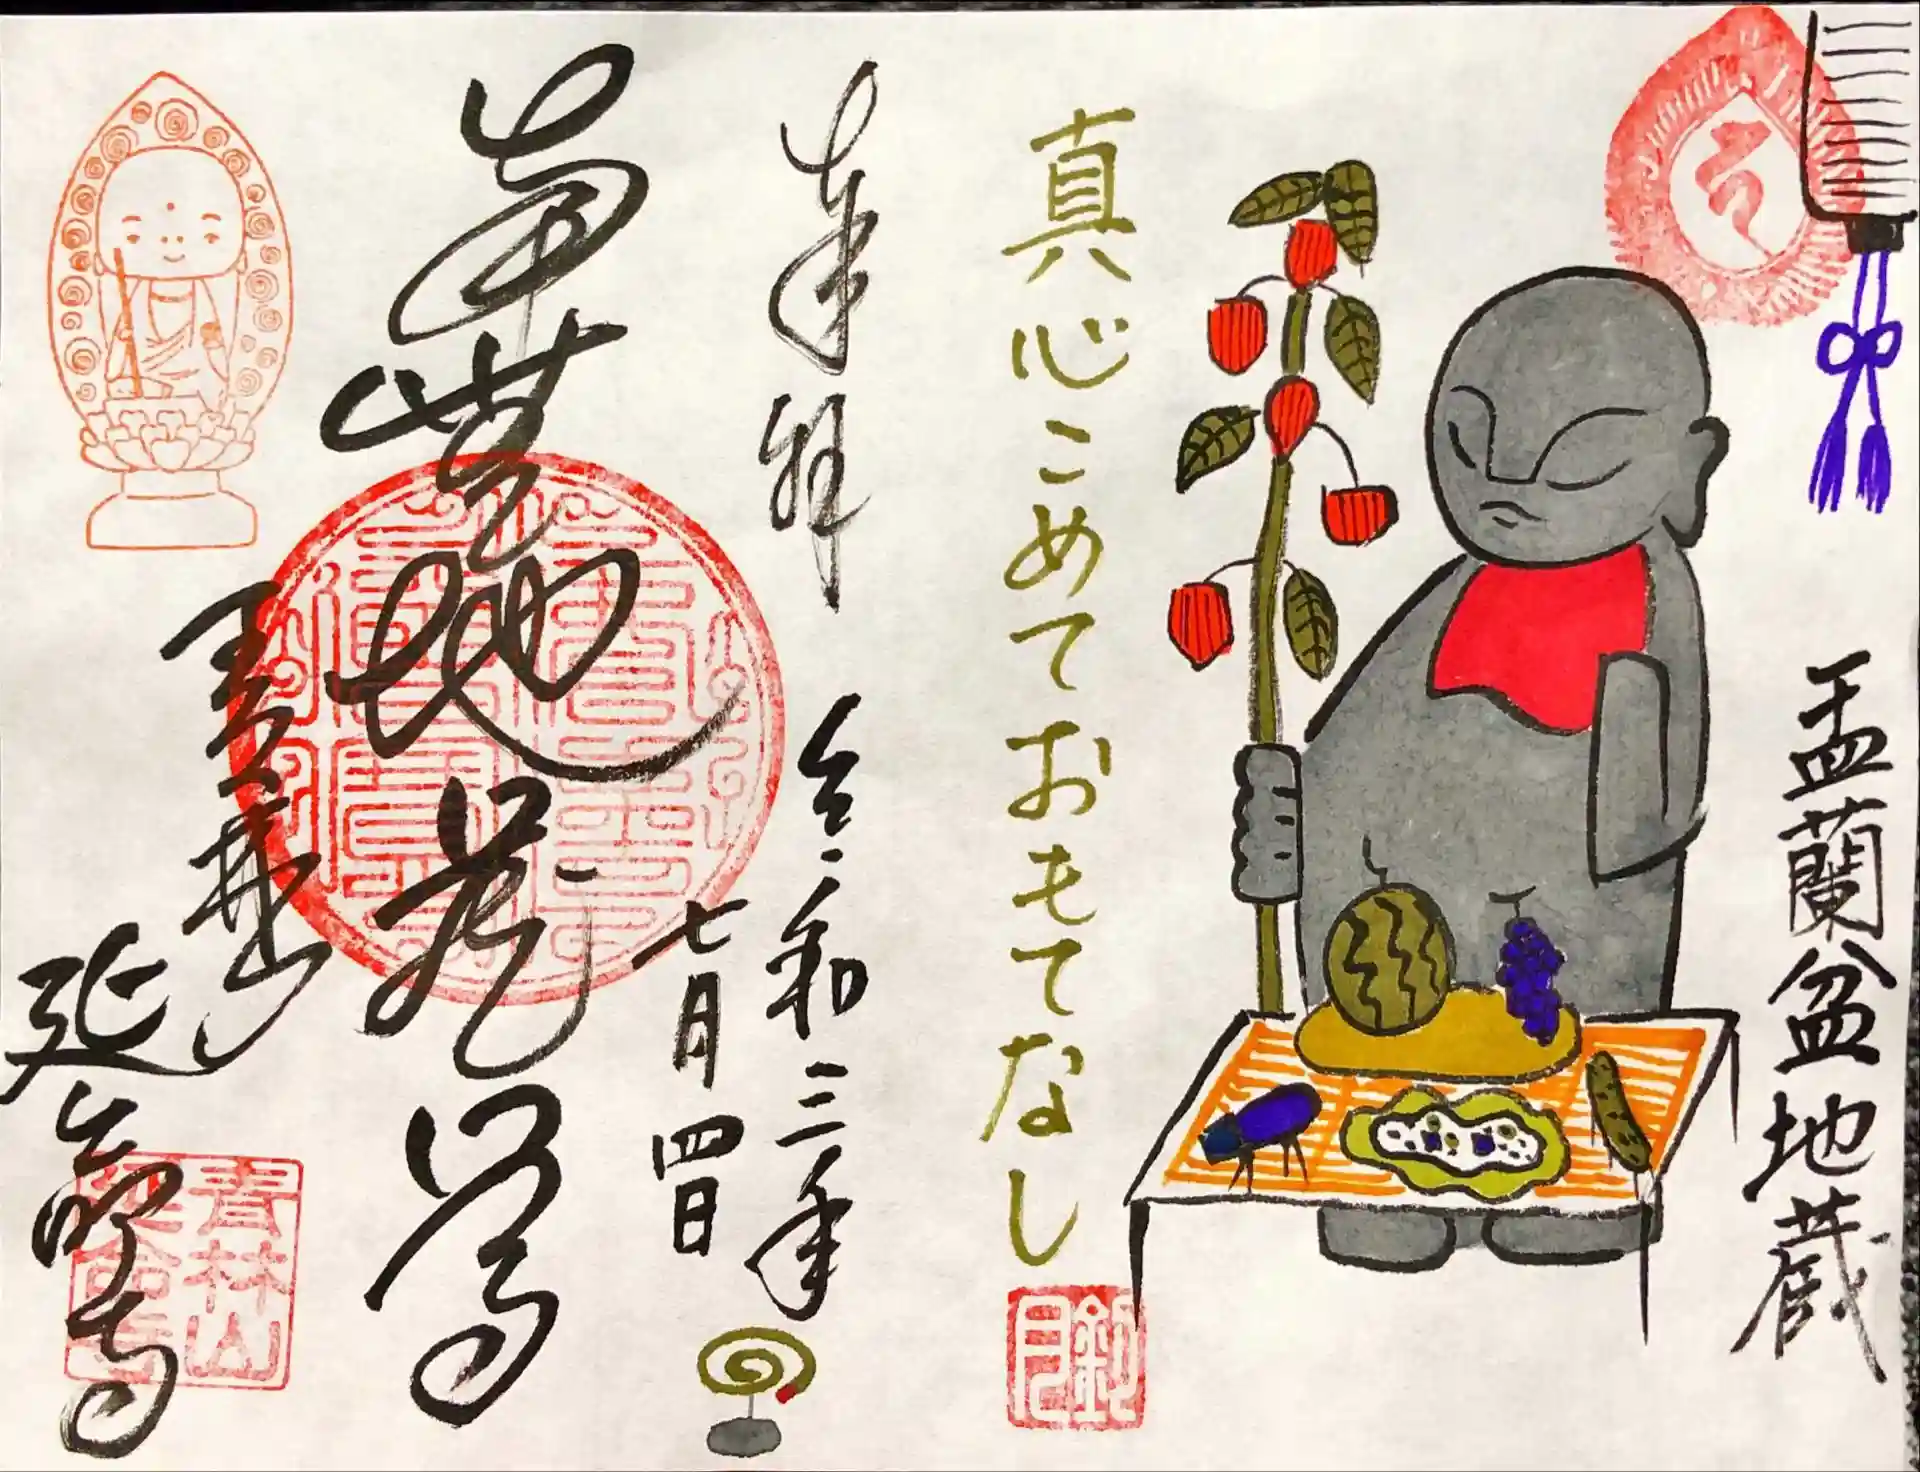 盂蘭盆地蔵
真心こめておもてなし
奉拝
令和三年
七月四日
南無地蔵尊
青林山
延命寺
青林山
延命寺